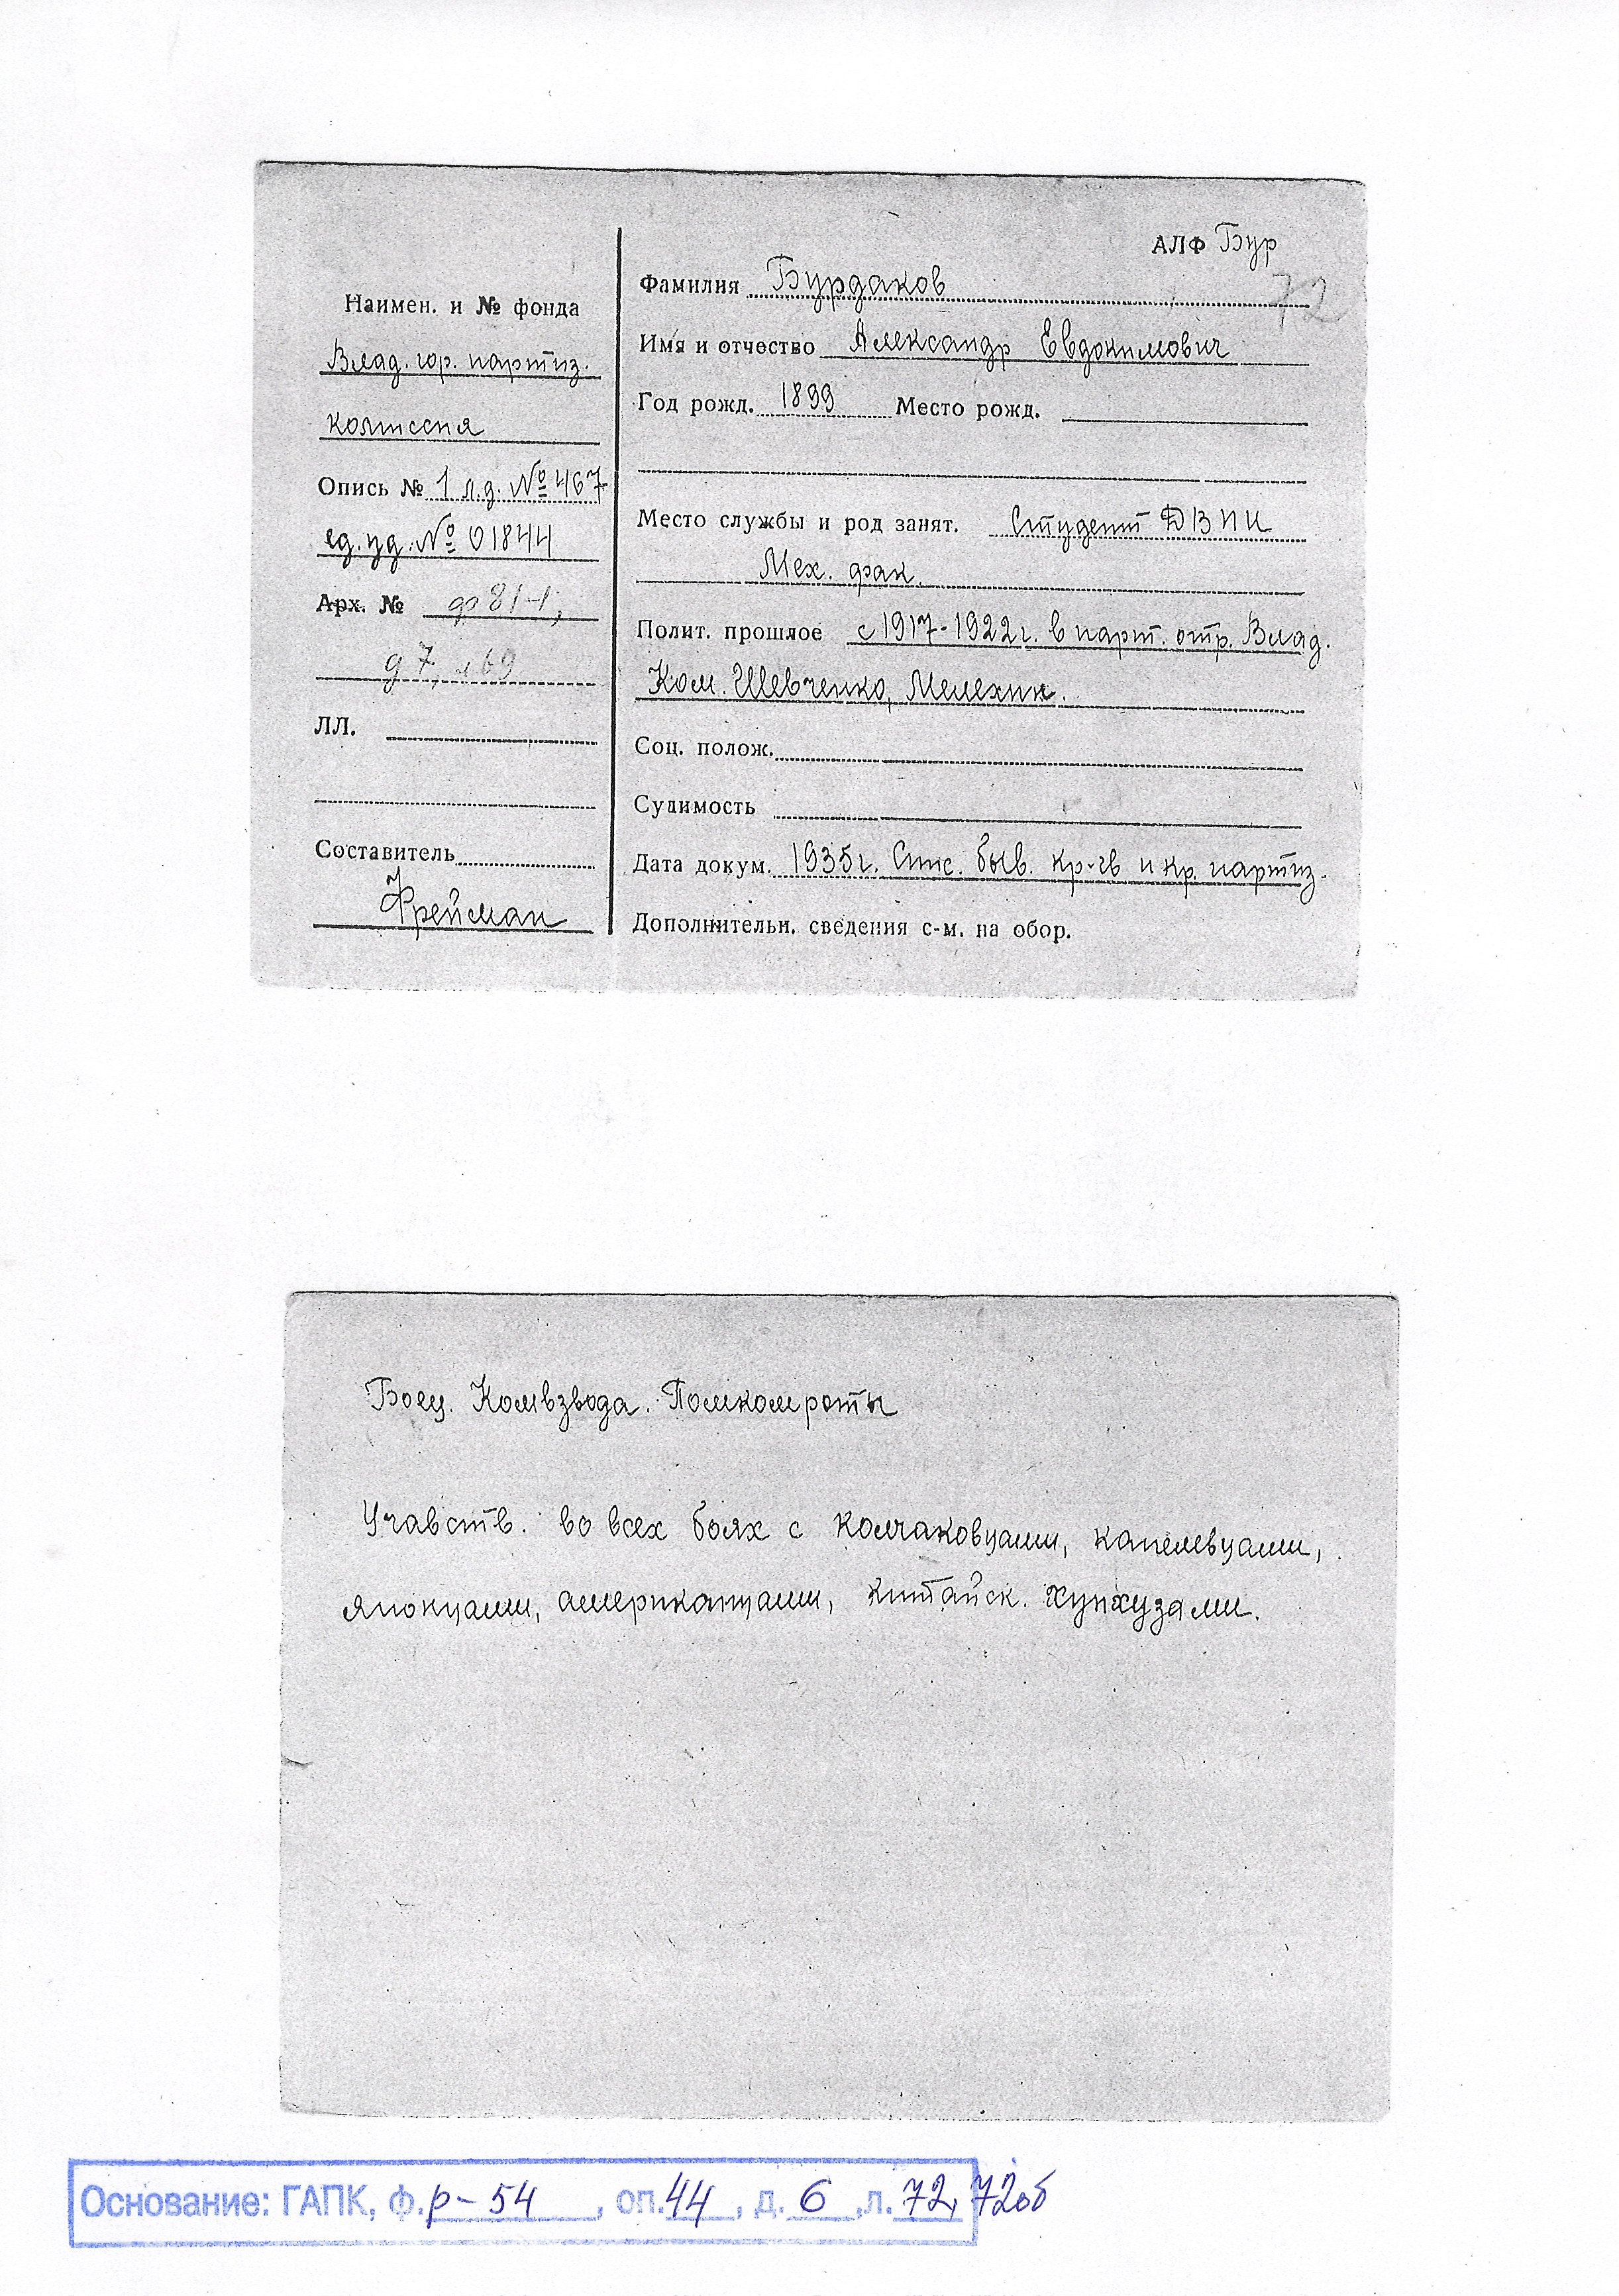 АЛФ Бур
72
Наимен. и № фонда
Влад. гор. партиз.
комиссия
Опись № 1 л.д. № 467
ед. уд. № 01844
Арх. № ф 81-1,
д 7, л 69
ЛЛ.
Составитель
Фрейман
Фамилия Бурдаков
Имя и отчество Александр Евдокимович
Год рожд. 1899 Место рожд.
Место службы и род занят. Студент ДВПИ
Мех. фак.
Полит. прошлое с 1917-1922 г. в парт. отр. Влад.
Ком. Шевченко, Мелехин.
Соц. полож.
Судимость
Дата докум. 1935 г. Спис. быв. кр-гв и кр. партиз.
Дополнительн. сведения с-м. на обор.
Боец. Комвзвода. Помкомроты
Учавств. во всех боях с колчаковцами, капелевцами,
японцами, американцами, китайск. хунхузами.
Основание: ГАПК, ф. р-54, оп. 44, д. 6, л. 72, 72об